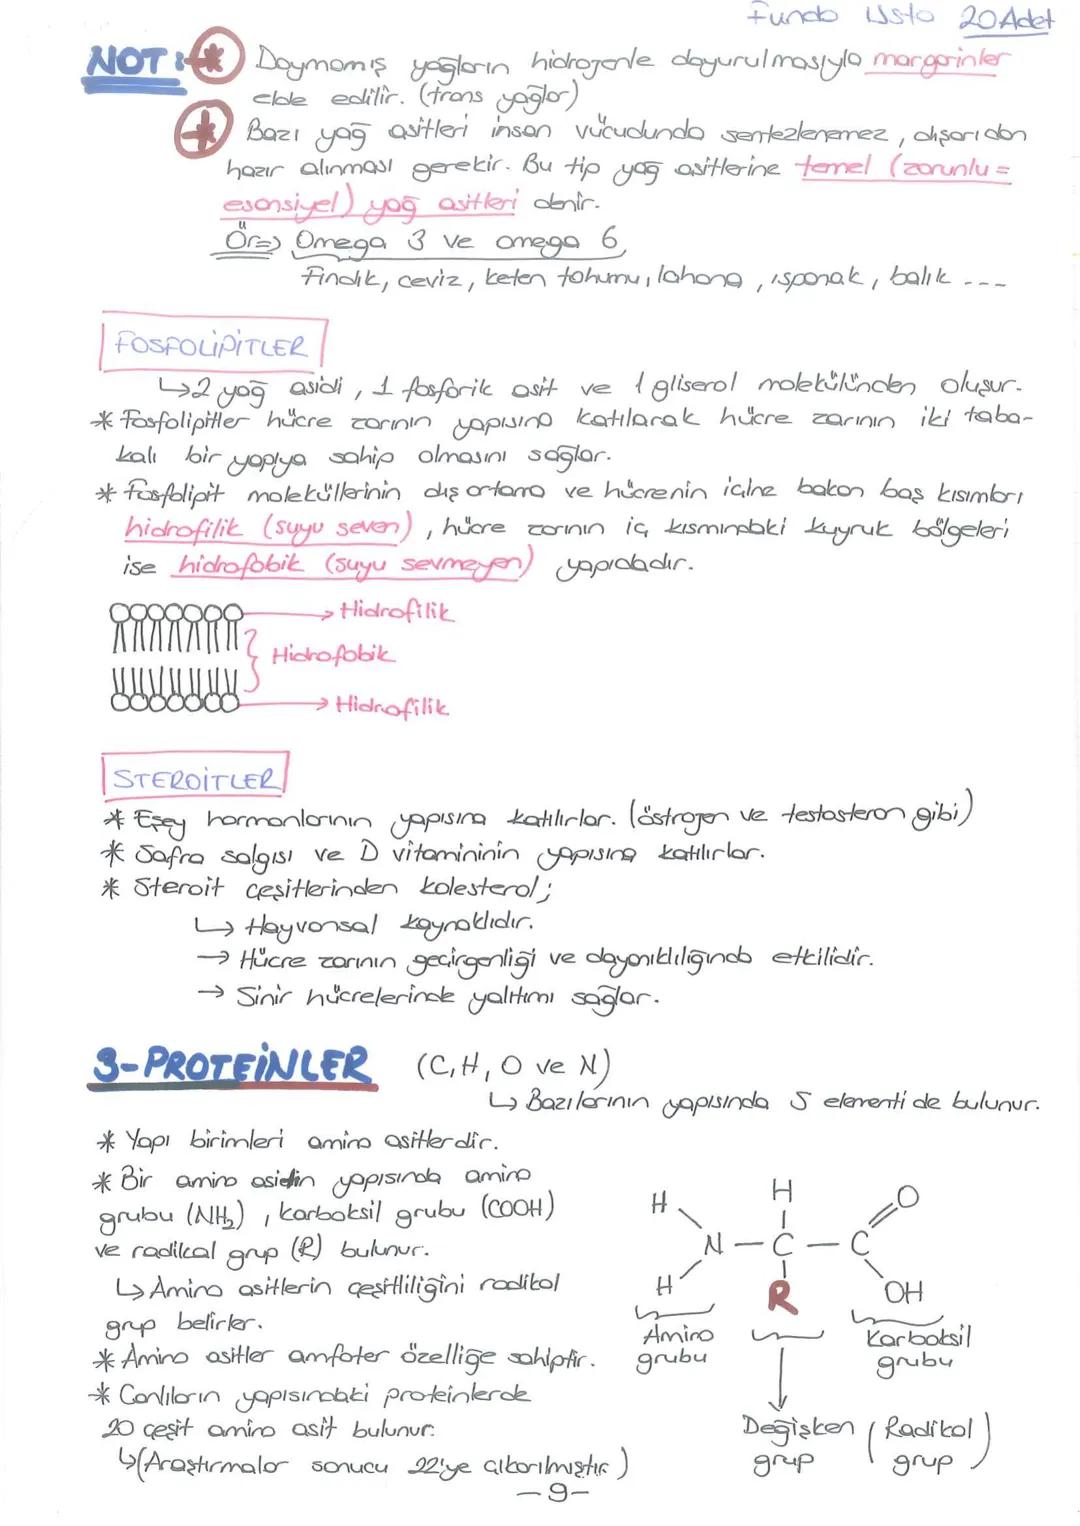 Funda Usta 20 Adet
NOT :* Doymamış yağların hidrojenle doyurulmasıyla margarinler
elde edilir. (trans yağlar)
* Bazı yağ asitleri insan vücudunda sentezlenemez, dışarıdan
hazır alınması gerekir. Bu tip yağ asitlerine temel (zorunlu =
esansiyel) yağ asitleri denir.
Ör=> Omega 3 ve omega 6
Fındık, ceviz, keten tohumu, lahana, ıspanak, balık ---
FOSFOLİPİTLER
↳ 2 yağ asidi, 1 fosforik asit ve 1 gliserol molekülünden oluşur.
* Fosfolipitler hücre zarının yapısına katılarak hücre zarının iki taba-
kalı bir yapıya sahip olmasını sağlar.
* Fosfolipit moleküllerinin dış ortama ve hücrenin içine bakan baş kısımları
hidrofilik (suyu seven), hücre zarının iç kısmındaki kuyruk bölgeleri
ise hidrofobik (suyu sevmeyen) yapıdadır.
→ Hidrofilik
Hidrofobik
→ Hidrofilik
STEROİTLER
* Eşey hormonlarının yapısına katılırlar. (östrojen ve testosteron gibi)
* Safra salgısı ve D vitamininin yapısına katılırlar.
* Steroit çeşitlerinden kolesterol;
↳ Hayvansal kaynaklıdır.
→ Hücre zarının geçirgenliği ve dayanıklılığında etkilidir.
→ Sinir hücrelerinde yalıtımı sağlar.
3-PROTEİNLER (C, H, O ve N)
↳ Bazılarının yapısında S elementi de bulunur.
* Yapı birimleri amino asitlerdir.
* Bir amino asidin yapısında amino
grubu (NH₂), karboksil grubu (COOH)
ve radikal grup (R) bulunur.
↳ Amino asitlerin çeşitliliğini radikal
grup belirler.
* Amino asitler amfoter özelliğe sahiptir.
* Canlıların yapısındaki proteinlerde
20 çeşit amino asit bulunur.
↳ (Araştırmalar sonucu 22'ye çıkarılmıştır)
H H O
N — C — C
H R OH
Amino
grubu
Karboksil
grubu
Değişken (Radikal
grup grup)
-9-